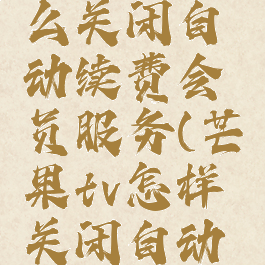 么关闭自
动续费会
员服务(芒
果tv怎样
关闭自动